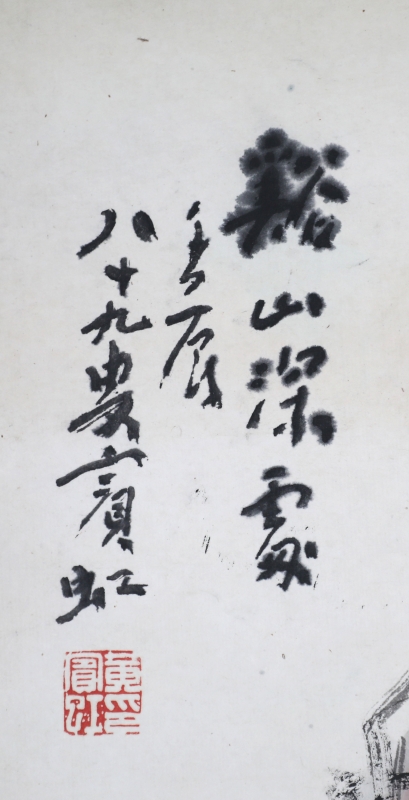 谿山深處
壬辰
八十九叟賓虹
黃賓虹印